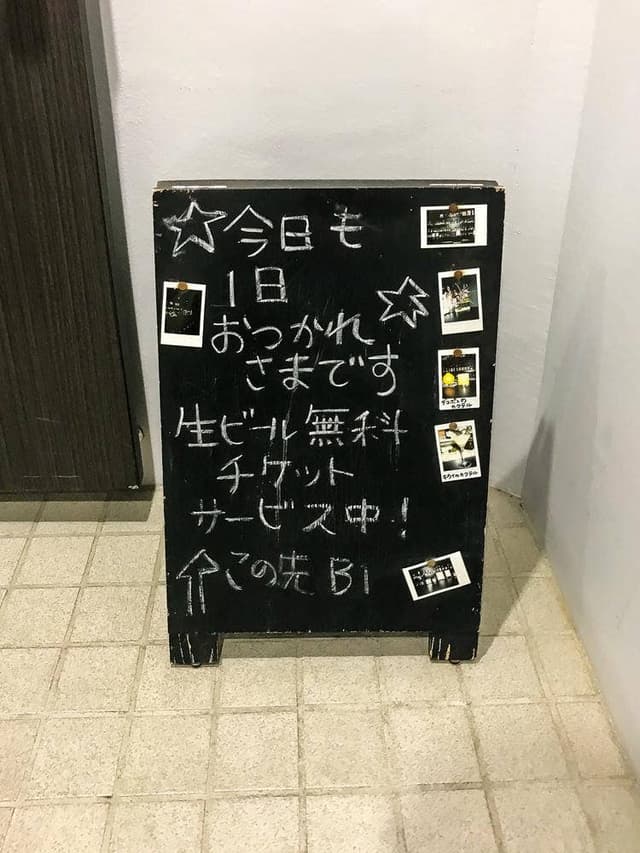 ☆今日も
1日
おつかれ☆
さまです
生ビール無料
チケット
サービス中!
⇧この先 B1